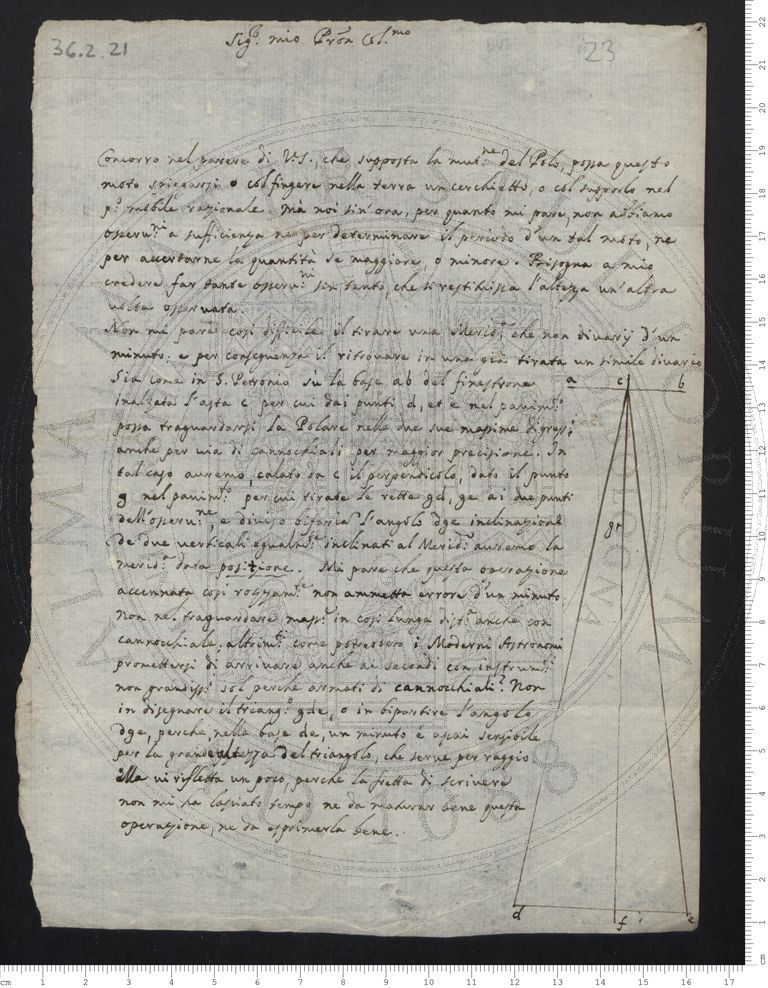 36.2.21
23
Sig.r mio Pron Col.mo
Concorro nel parere di V.S., che supposta la mut.ne del Polo, possa questo
moto spiegarsi o col fingere nella terra un cerchietto, o col supporlo nel
p.o mobile razionale. Mà noi sin'ora, per quanto mi pare, non abbiamo
osseru.ni a sufficienza ne per determinare il periodo d'un tal moto, ne
per accertarne la quantità se maggiore, o minore. Bisogna a mio
credere far tante osseru.ni sin tanto, che si restituisca l'altezza un'altra
uolta osseruata.
Non mi pare così difficile il tirare una Merid.a che non diuarij d'un
minuto, e per conseguenza il ritrouare in una già tirata un simile diuario
Sia come in S. Petronio sù la base ab del finestrone
inalzata l'asta c per cui dai punti d, et e nel pauim.to
possa traguardarsi la Polare nelle due sue massime digress.i
anche per uia di cannochiali per maggior precisione. In
tal caso auremo, calato da c il perpendicolo, dato il punto
g nel pauim.to per cui tirate le rette gd, ge ai due punti
dell'osseru.ne, e diuiso bifaria l'angolo dge inclinazione
de due uerticali egualm.te inclinati al Merid.o auremo la
merid.a data posizione. Mi pare che questa operazione
accennata così rozzam.te non ammetta errore d'un minuto
Non nel traguardare mass.e in così lunga dist.a anche con
cannochiale; altrim.ti come potrebbero i Moderni Astronomi
promettersi di arriuare anche ai secondi con instrum.ti
non grandiss.i sol perche armati di cannochiali? Non
in disegnare il triang.o gde, o in bipartire l'angolo
dge, perche nella base de, un minuto è assai sensibile
per la grande altezza del triangolo, che serue per raggio
Ma ui rifletta un poco, perchè la fretta di scriuere
non mi ha lasciato tempo ne da maturar bene questa
operazione, ne da esprimerla bene.
a c b
g
d f e